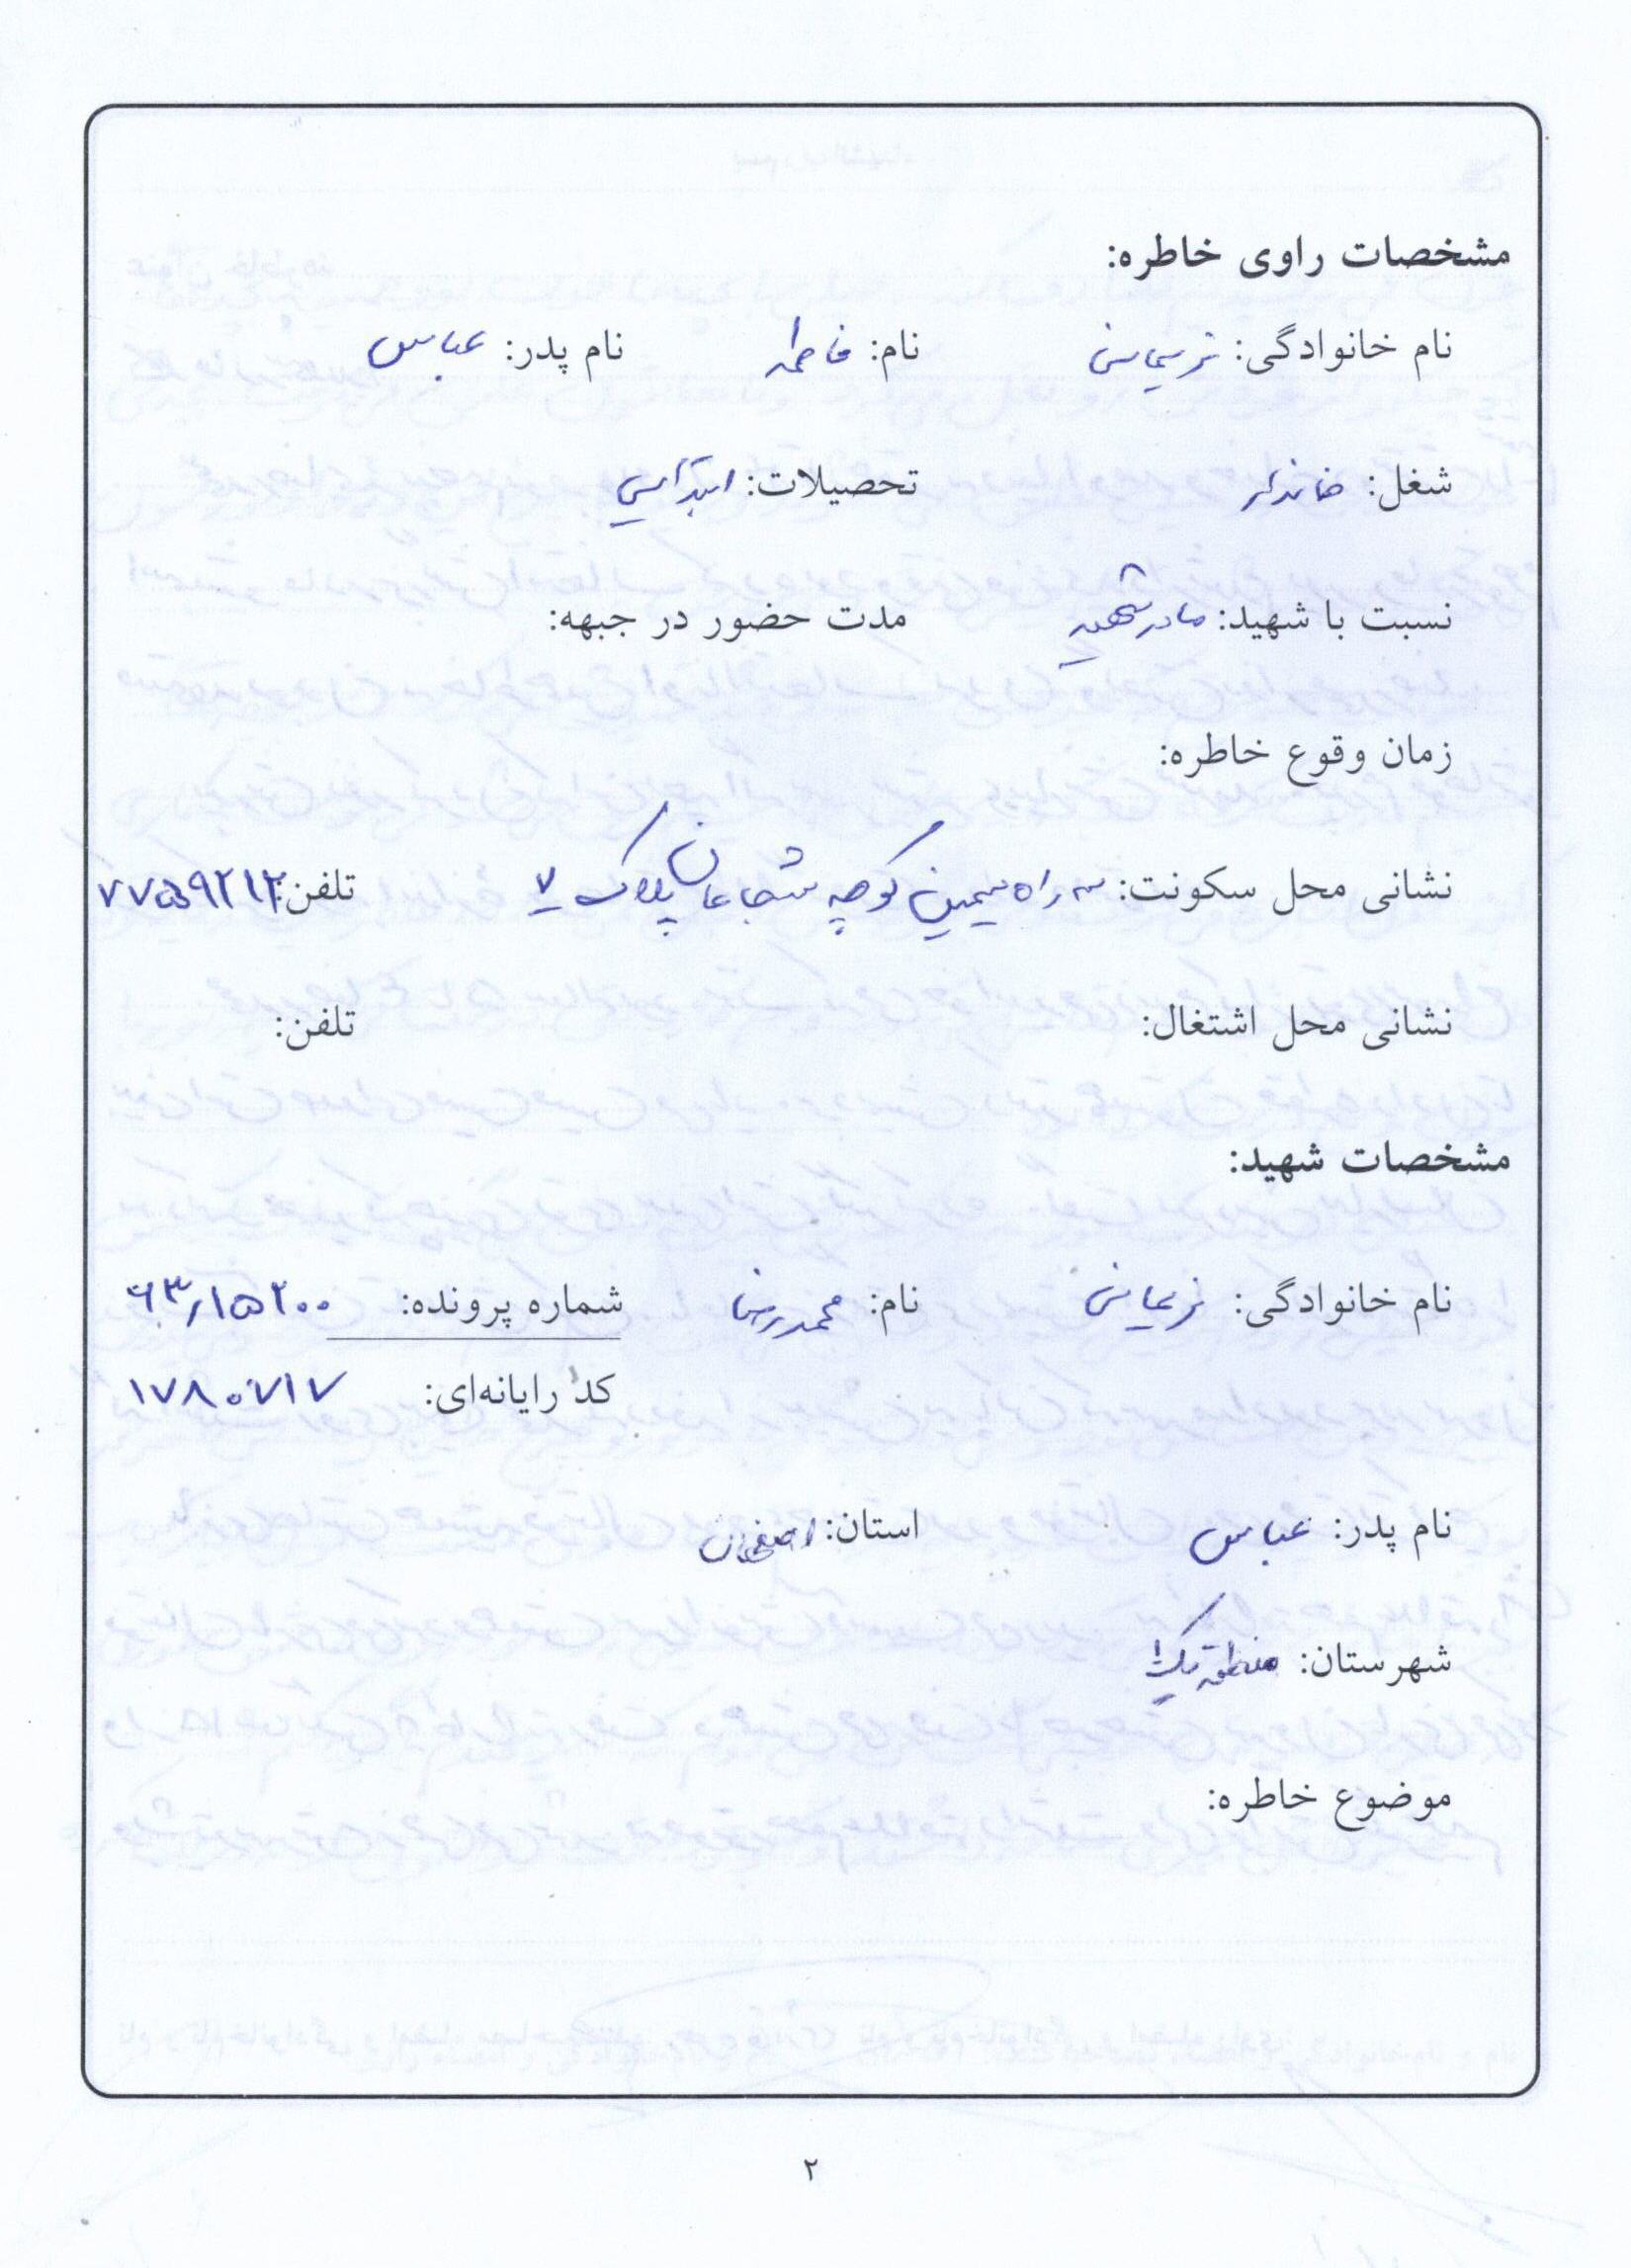 مشخصات راوی خاطره:
نام خانوادگی: نریمانی نام: فاطمه نام پدر: عباس
شغل: خانه‌دار تحصیلات: ابتدایی
نسبت با شهید: مادر شهید مدت حضور در جبهه:
زمان وقوع خاطره:
نشانی محل سکونت: سه راه سیمین کوچه شجاعان پلاک ۷ تلفن: ۷۷۵۹۲۱۲
نشانی محل اشتغال: تلفن:
مشخصات شهید:
نام خانوادگی: نریمانی نام: محمدرضا شماره پرونده: ۶۳/۱۵۲۰۰
کد رایانه‌ای: ۱۷۸۰۷۱۷
نام پدر: عباس استان: اصفهان
شهرستان: منطقه یک
موضوع خاطره:
۲